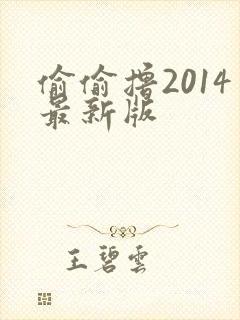 偷偷撸2014
最新版
王碧雲